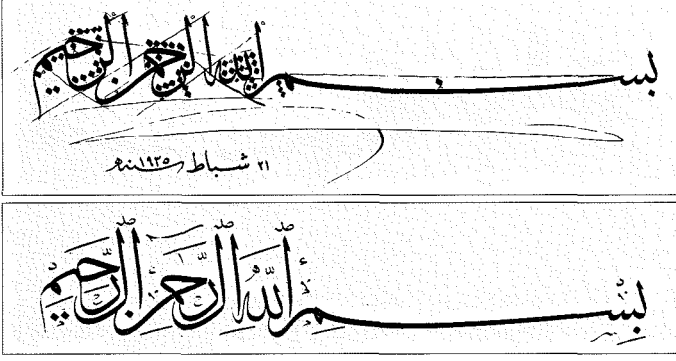 بسم الله الرحمن الرحيم
٢١ شباط سنه ١٩٢٥
بِسْمِ اللَّهِ الرَّحْمَنِ الرَّحِيمِ